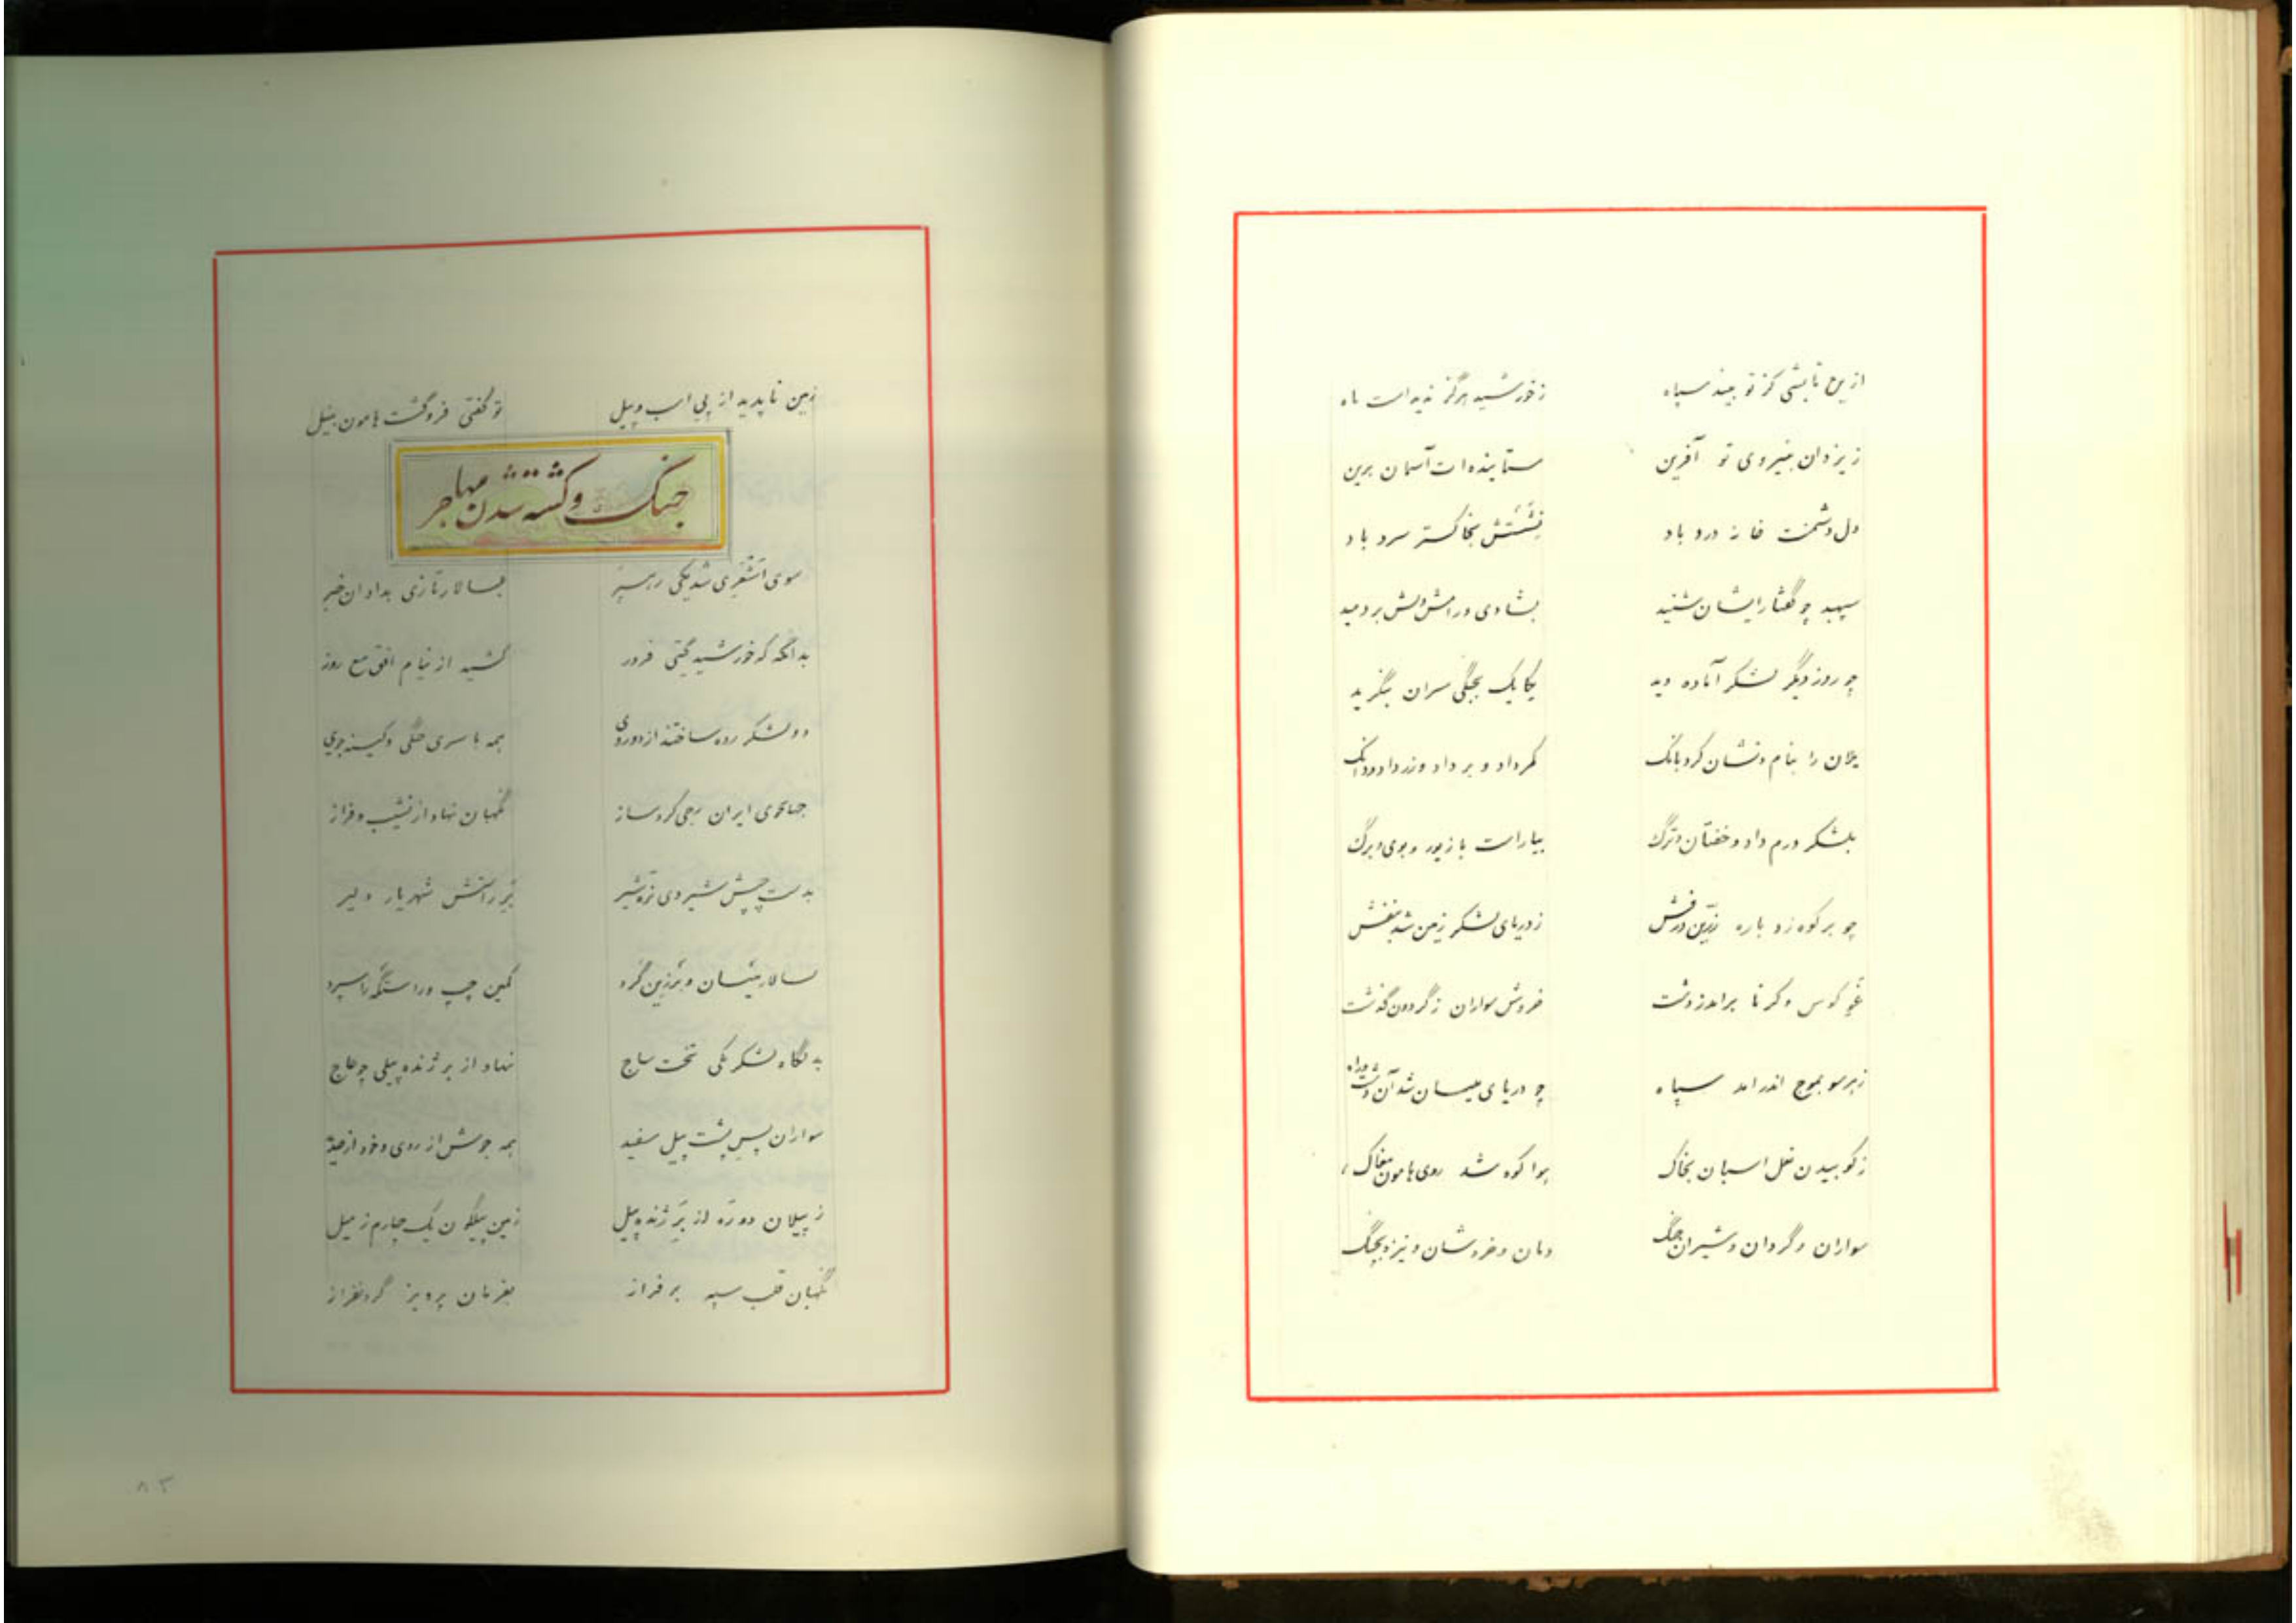 ازین تابشی کز تو بیند سپاه زخورشید هرگز ندیداست ماه
زیزدان بنیروی تو آفرین ستاینده ات آسمان برین
دل دشمنت خانه درد باد نشستش بخاکستر سرد باد
سپهبد چو گفتار ایشان شنید بشادی ورامش دلش بردمید
چو روز دیگر لشکر آماده دید یکایک بجنگی سران بنگرید
یلان را بنام ونشان کرد بانگ کمرداد و برداد وزرداد ودانگ
بلشکر درم داد وخفتان وترک بیاراست با زیور و بوی وبرگ
چو برکوه زد باره زرین درفش زدریای لشکر زمین شد بنفش
غو کوس وکرنا برامد زدشت خروش سواران زگردون گذشت
زهرسو بموج اندرامد سپاه چو دریای شد آن دشت وراه
زکوبیدن نعل اسپان بخاک هوا کوه شد روی هامون مغاک
سواران وگردان وشیران جنگ دمان وخروشان ونیزه بچنگ
زمین ناپدید از پی اسب وپیل توگفتی فروگشت هامون بنیل
جنگ وکشته شدن مهاجر
سوی اشعری شد یکی رهبر بسالارتازی بداد ان خبر
بدانگه که خورشید گیتی فروز کشید از نیام افق تیغ روز
دولشکر رده ساختند ازدوروی همه با سری جنگی وکینه جوی
جهانجوی ایران کردساز نگهبان نهاد از نشیب وفراز
بدست چپش شیردی نره شیر بر راستش شهریار دلیر
بسالار میسان و گرد کمین چپ وراستگه را سپرد
به لشکر یکی تخت ساج نهاد از بر ژنده پیلی چوعاج
سواران پس پشت پیل سفید همه جوشن از روی وخود از
زپیلان دورده از بر ژنده پیل زمین پیلگون یک چارم زمیل
نگهبان قلب سپه برفراز بفرمان پرویز گردنفراز
۸۳